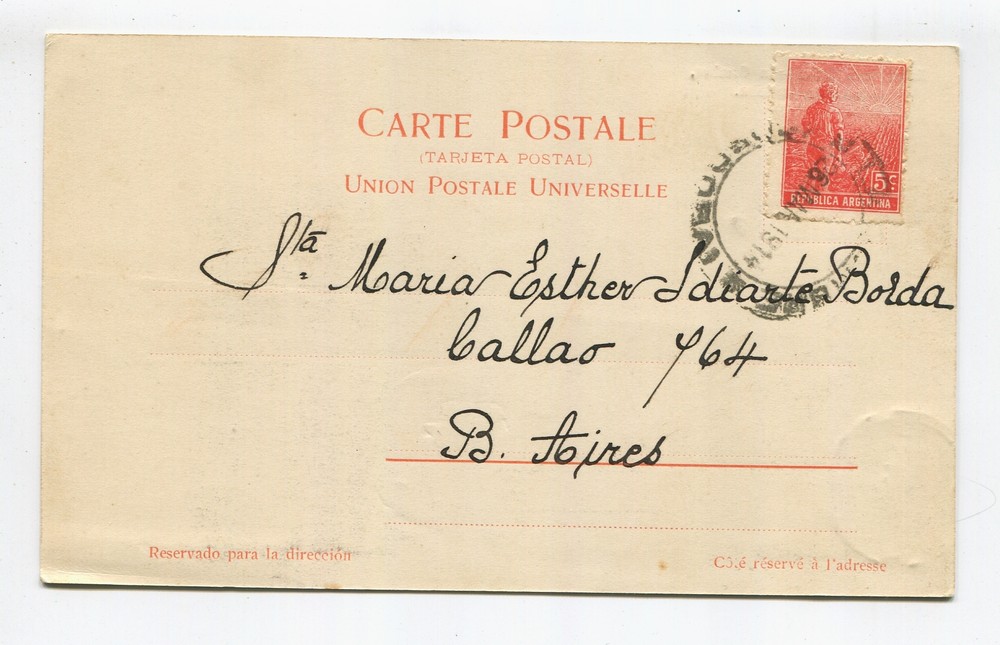 CARTE POSTALE
(TARJETA POSTAL)
UNION POSTALE UNIVERSELLE
5c
REPÚBLICA ARGENTINA
1914
Sta. Maria Esther Idiarte Borda
Callao 764
B. Aires
Reservado para la dirección
Côté réservé à l'adresse